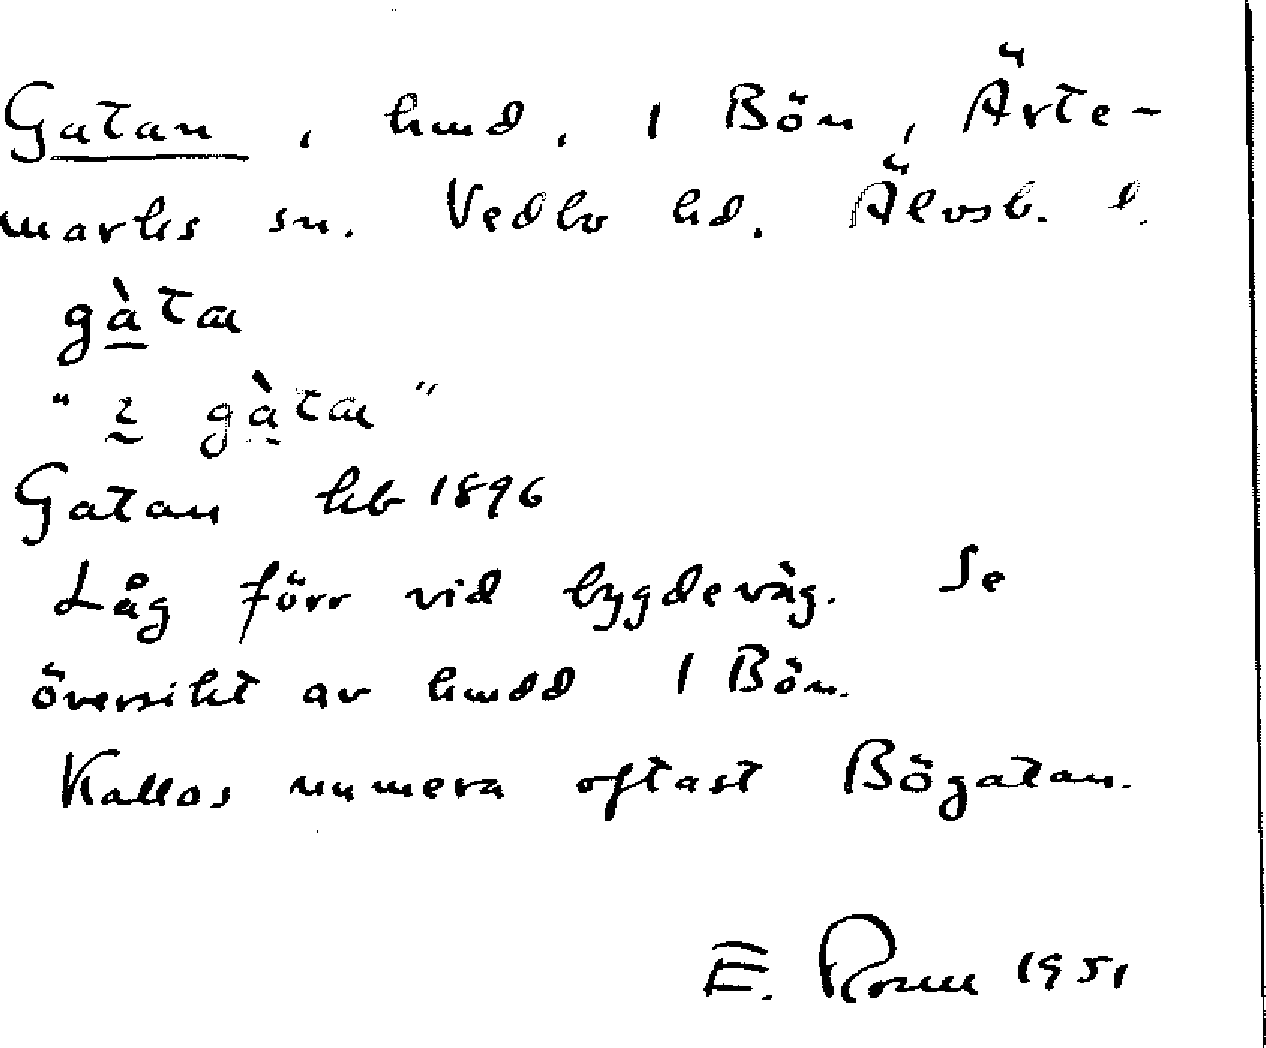 Gatan, hmd. 1 Bön, Ärte-
marks sn. Vedbo hd. Älvsb. l.
gàta
"i gàta"
Gatan hb 1896
Låg förr vid bygdeväg. Se
översikt av hmdd 1 Bön.
Kallas numera oftast Bögatan.
E. 1951